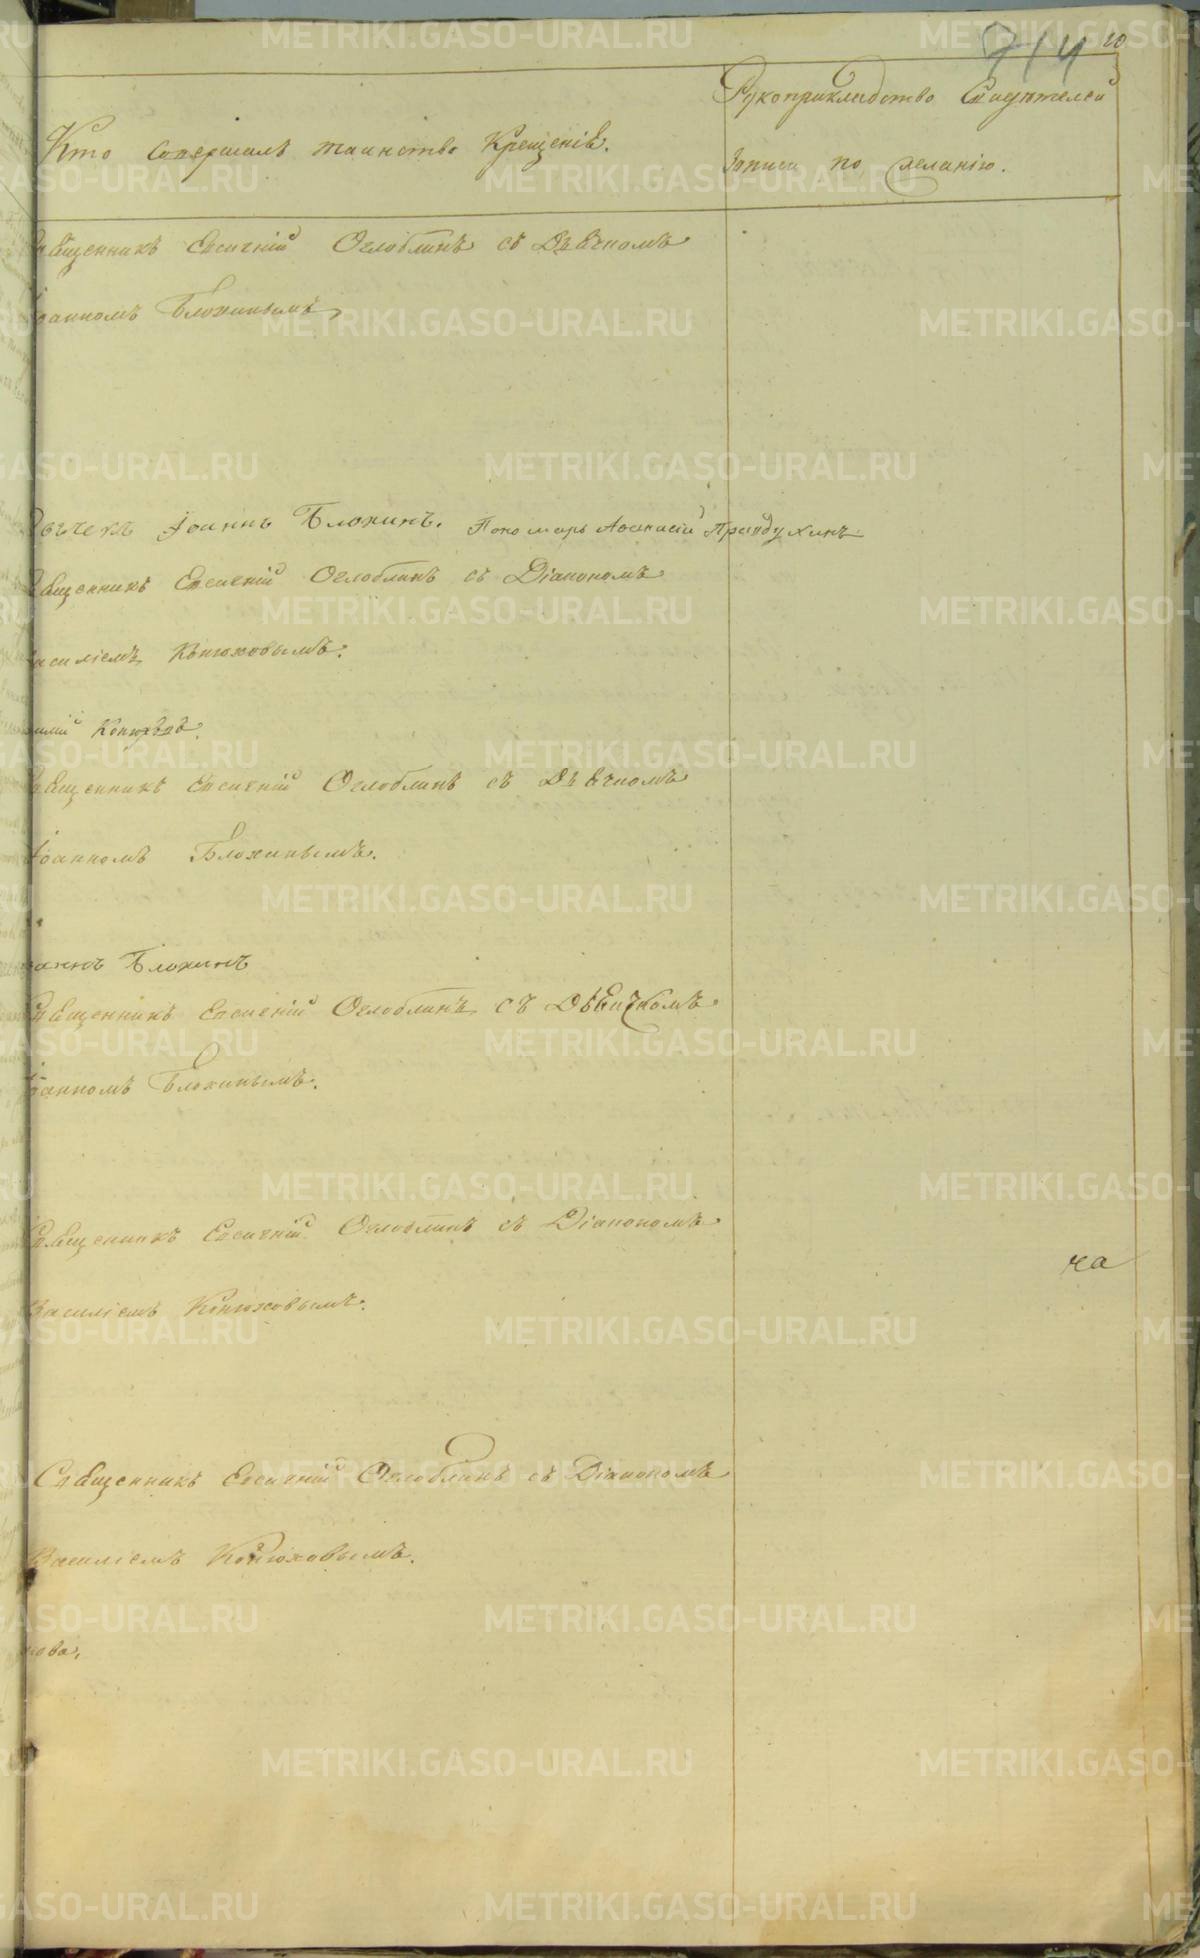 714 10
Рукоприкладство Свидѣтелей
Кто совершалъ таинство Крещенiѣ.
записи по желанiю.
Священникъ Евсигнiй Оглоблинъ съ Дьячкомъ
Iоанномъ Блохинымъ.
Дьячекъ Iоаннъ Блохинъ. Пономарь Афанасiй Правдухинъ
Священникъ Евсигнiй Оглоблинъ съ Дiакономъ
Василiемъ Конюховымъ.
Конюховъ.
Священникъ Евсигнiй Оглоблинъ съ Дьячкомъ
Iоанномъ Блохинымъ.
Блохинъ
Священникъ Евсигнiй Оглоблинъ съ Дьячкомъ
Iоанномъ Блохинымъ.
Священникъ Евсигнiй Оглоблинъ съ Дiакономъ
ча
Василiемъ Конюховымъ.
Священникъ Евсигнiй Оглоблинъ съ Дiакономъ
Василiемъ Конюховымъ.
METRIKI.GASO-URAL.RU